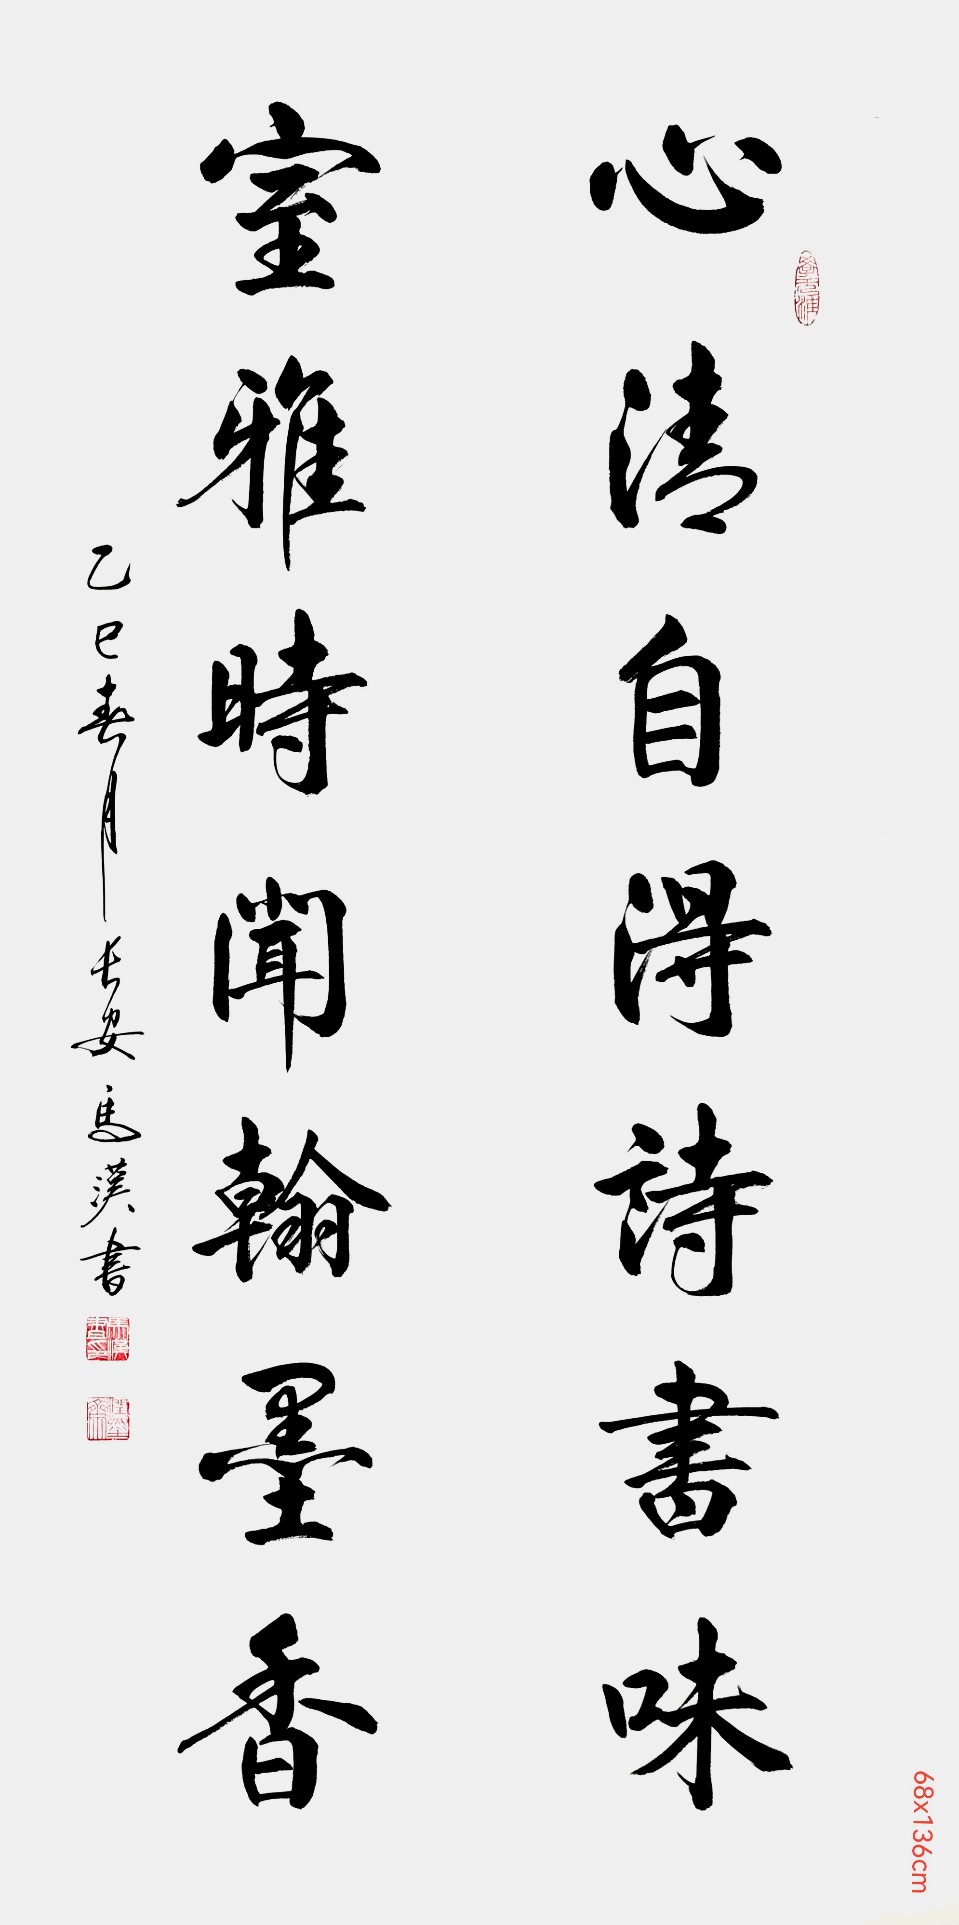 心清自得詩書味
室雅時聞翰墨香
乙巳春月長安馬漢書
68x136cm